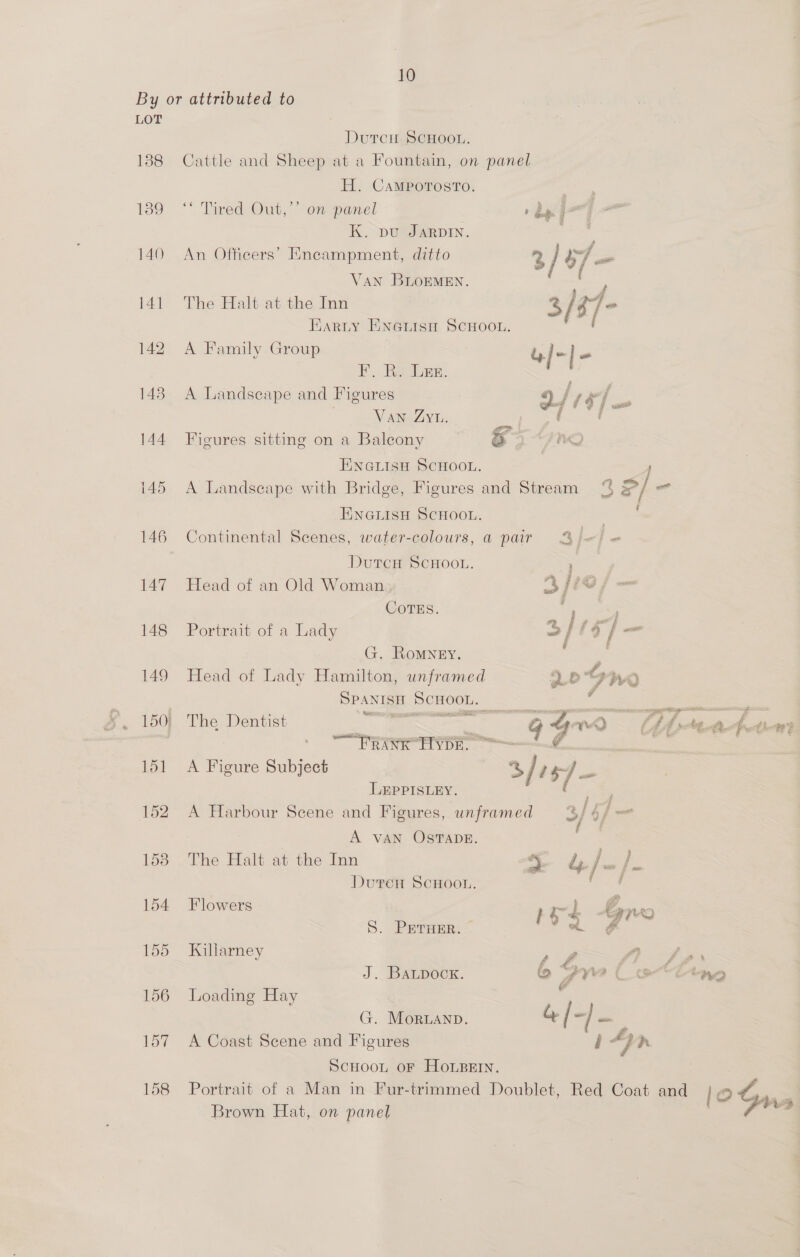 10
By or attributed to
LOT
DUTCH SCHOOL.
138 Cattle and Sheep at a Fountain, on panel
H. CAMPOTOSTO.
139 “ Tired Out,” on panel
K. DU JARDIN.
140 An Officers’ Encampment, ditto 3/5/-
VAN BLOEMEN.
141 The Halt at the Inn 3/5/-
EARLY ENGLISH SCHOOL.
142 A Family Group 4/-/-
F. R. LEE.
143 A Landscape and Figures 2/15/-
VAN ZYL.
144 Figures sitting on a Balcony
ENGLISH SCHOOL.
145 A Landscape with Bridge, Figures and Stream
ENGLISH SCHOOL.
146 Continental Scenes, water-colours, a pair 3/-/-
DUTCH SCHOOL.
147 Head of an Old Woman 3/10/-
COTES.
148 Portrait of a Lady 3/15/-
G. ROMNEY.
149 Head of Lady Hamilton, unframed 20 Gns
SPANISH SCHOOL.
150 The Dentist 9 Gns
FRANK HYDE.
151 A Figure Subject 3/15/-
LEPPISLEY.
152 A Harbour Scene and Figures, unframed 3/5/-
A VAN OSTADE.
153 The Halt at the Inn 4/-/-
DUTCH SCHOOL.
154 Flowers Gns
S. PETHER.
155 Killarney
J. BALDOCK. 6 Gns
156 Loading Hay
G. MORLAND. 4/-/-
157 A Coast Scene and Figures 1 Gn
SCHOOL OF HOLBEIN.
158 Portrait of a Man in Fur-trimmed Doublet, Red Coat and 10 Gns
Brown Hat, on panel